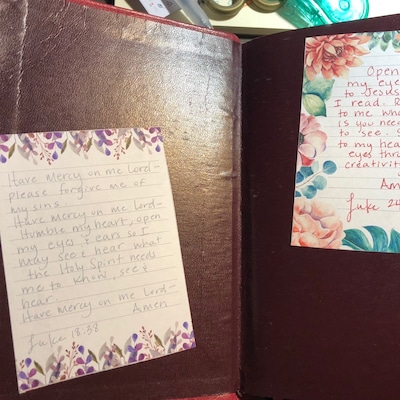 Have Mercy on me Lord-
please forgive me of
my sins.
Have Mercy on me Lord-
Humble my heart, open
my eyes & ears so I
may see & hear what
the Holy Spirit needs
me to know, see &
hear.
Have Mercy on me Lord-
Amen
Luke 18:38
Open
my eye
to Jesus
I read. R
to me wha
is you nee
to see. S
to my hea
eyes thr
creativit
Am
Luke 24